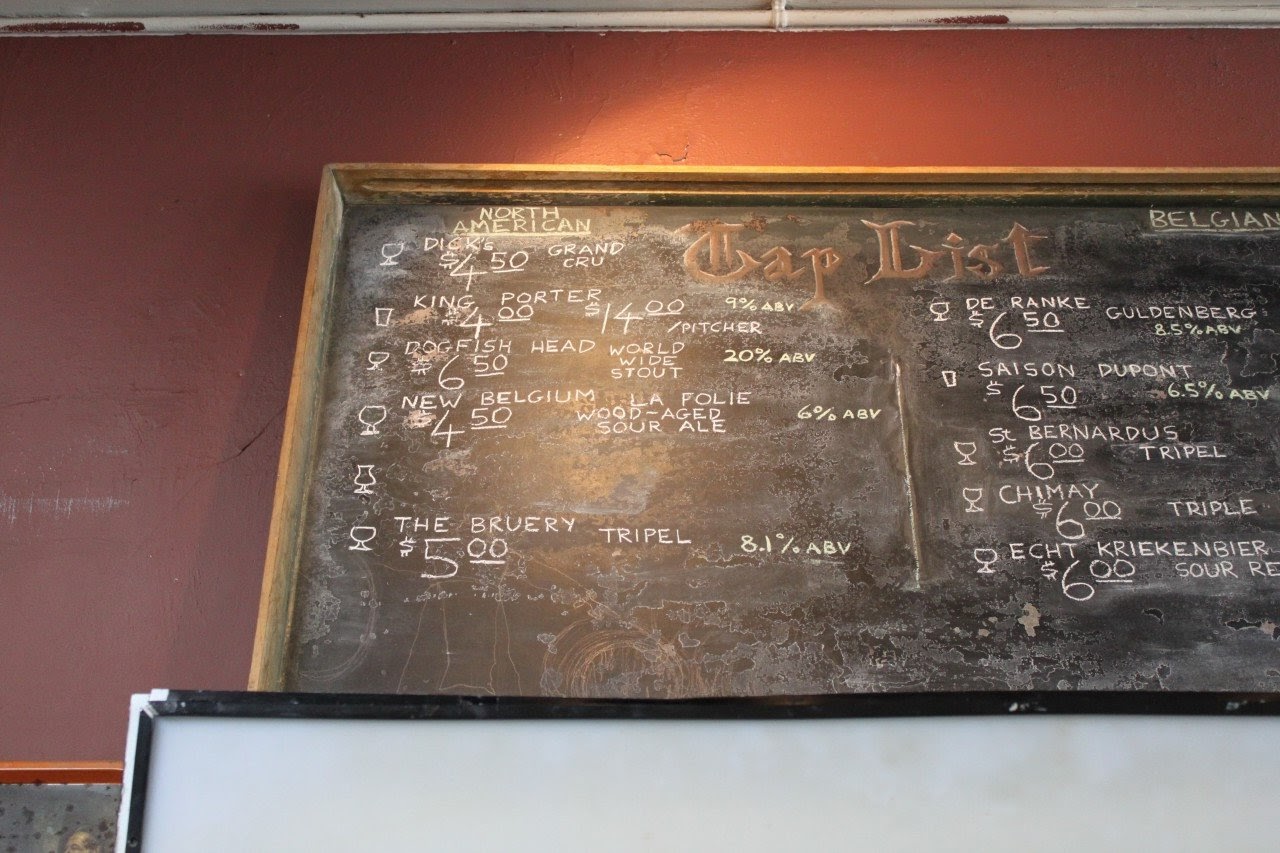 Tap List
NORTH
AMERICAN
DICK's GRAND
$4.50 CRU
KING PORTER 9% ABV
$4.00 $14.00 /PITCHER
DOGFISH HEAD WORLD
$6.50 WIDE 20% ABV
STOUT
NEW BELGIUM LA FOLIE
$4.50 WOOD-AGED 6% ABV
SOUR ALE
THE BRUERY TRIPEL 8.1% ABV
$5.00
BELGIAN
DE RANKE GULDENBERG
$6.50 8.5% ABV
SAISON DUPONT
$6.50 6.5% ABV
St BERNARDUS
$6.00 TRIPEL
CHIMAY
$6.00 TRIPLE
ECHT KRIEKENBIER
$6.00 SOUR RE